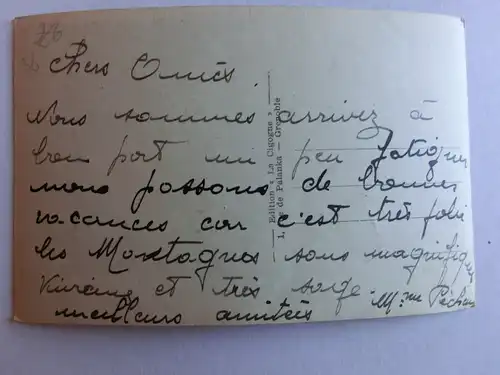 28
Chers Amies.
Nous sommes arrivez à
bon port un peu fatigue
nous possons de bonnes
vacances car c'est très jolie
les Montagnes sons magnifique
et très sage. Mme
meilleurs amitiés
Edition « La Cigogne »
1, de Palanka - Grenoble